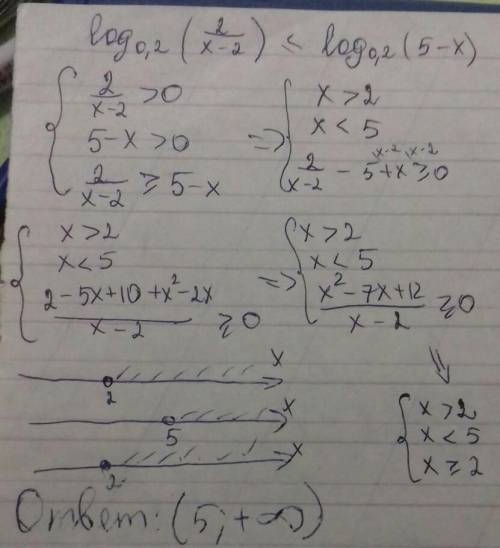 log₀,₂ (2/(x-2)) ≤ log₀,₂ (5-x)
{ 2/(x-2) > 0
5-x > 0
2/(x-2) ≥ 5-x
=> { x > 2
x < 5
2/(x-2) - 5 + x ≥ 0
x-2 x-2
{ x > 2
x < 5
(2-5x+10+x²-2x)/(x-2) ≥ 0
=> { x > 2
x < 5
(x²-7x+12)/(x-2) ≥ 0
⇓
{ x > 2
x < 5
x ≥ 2
x
2
x
5
x
2
Ответ: (5; +∞)